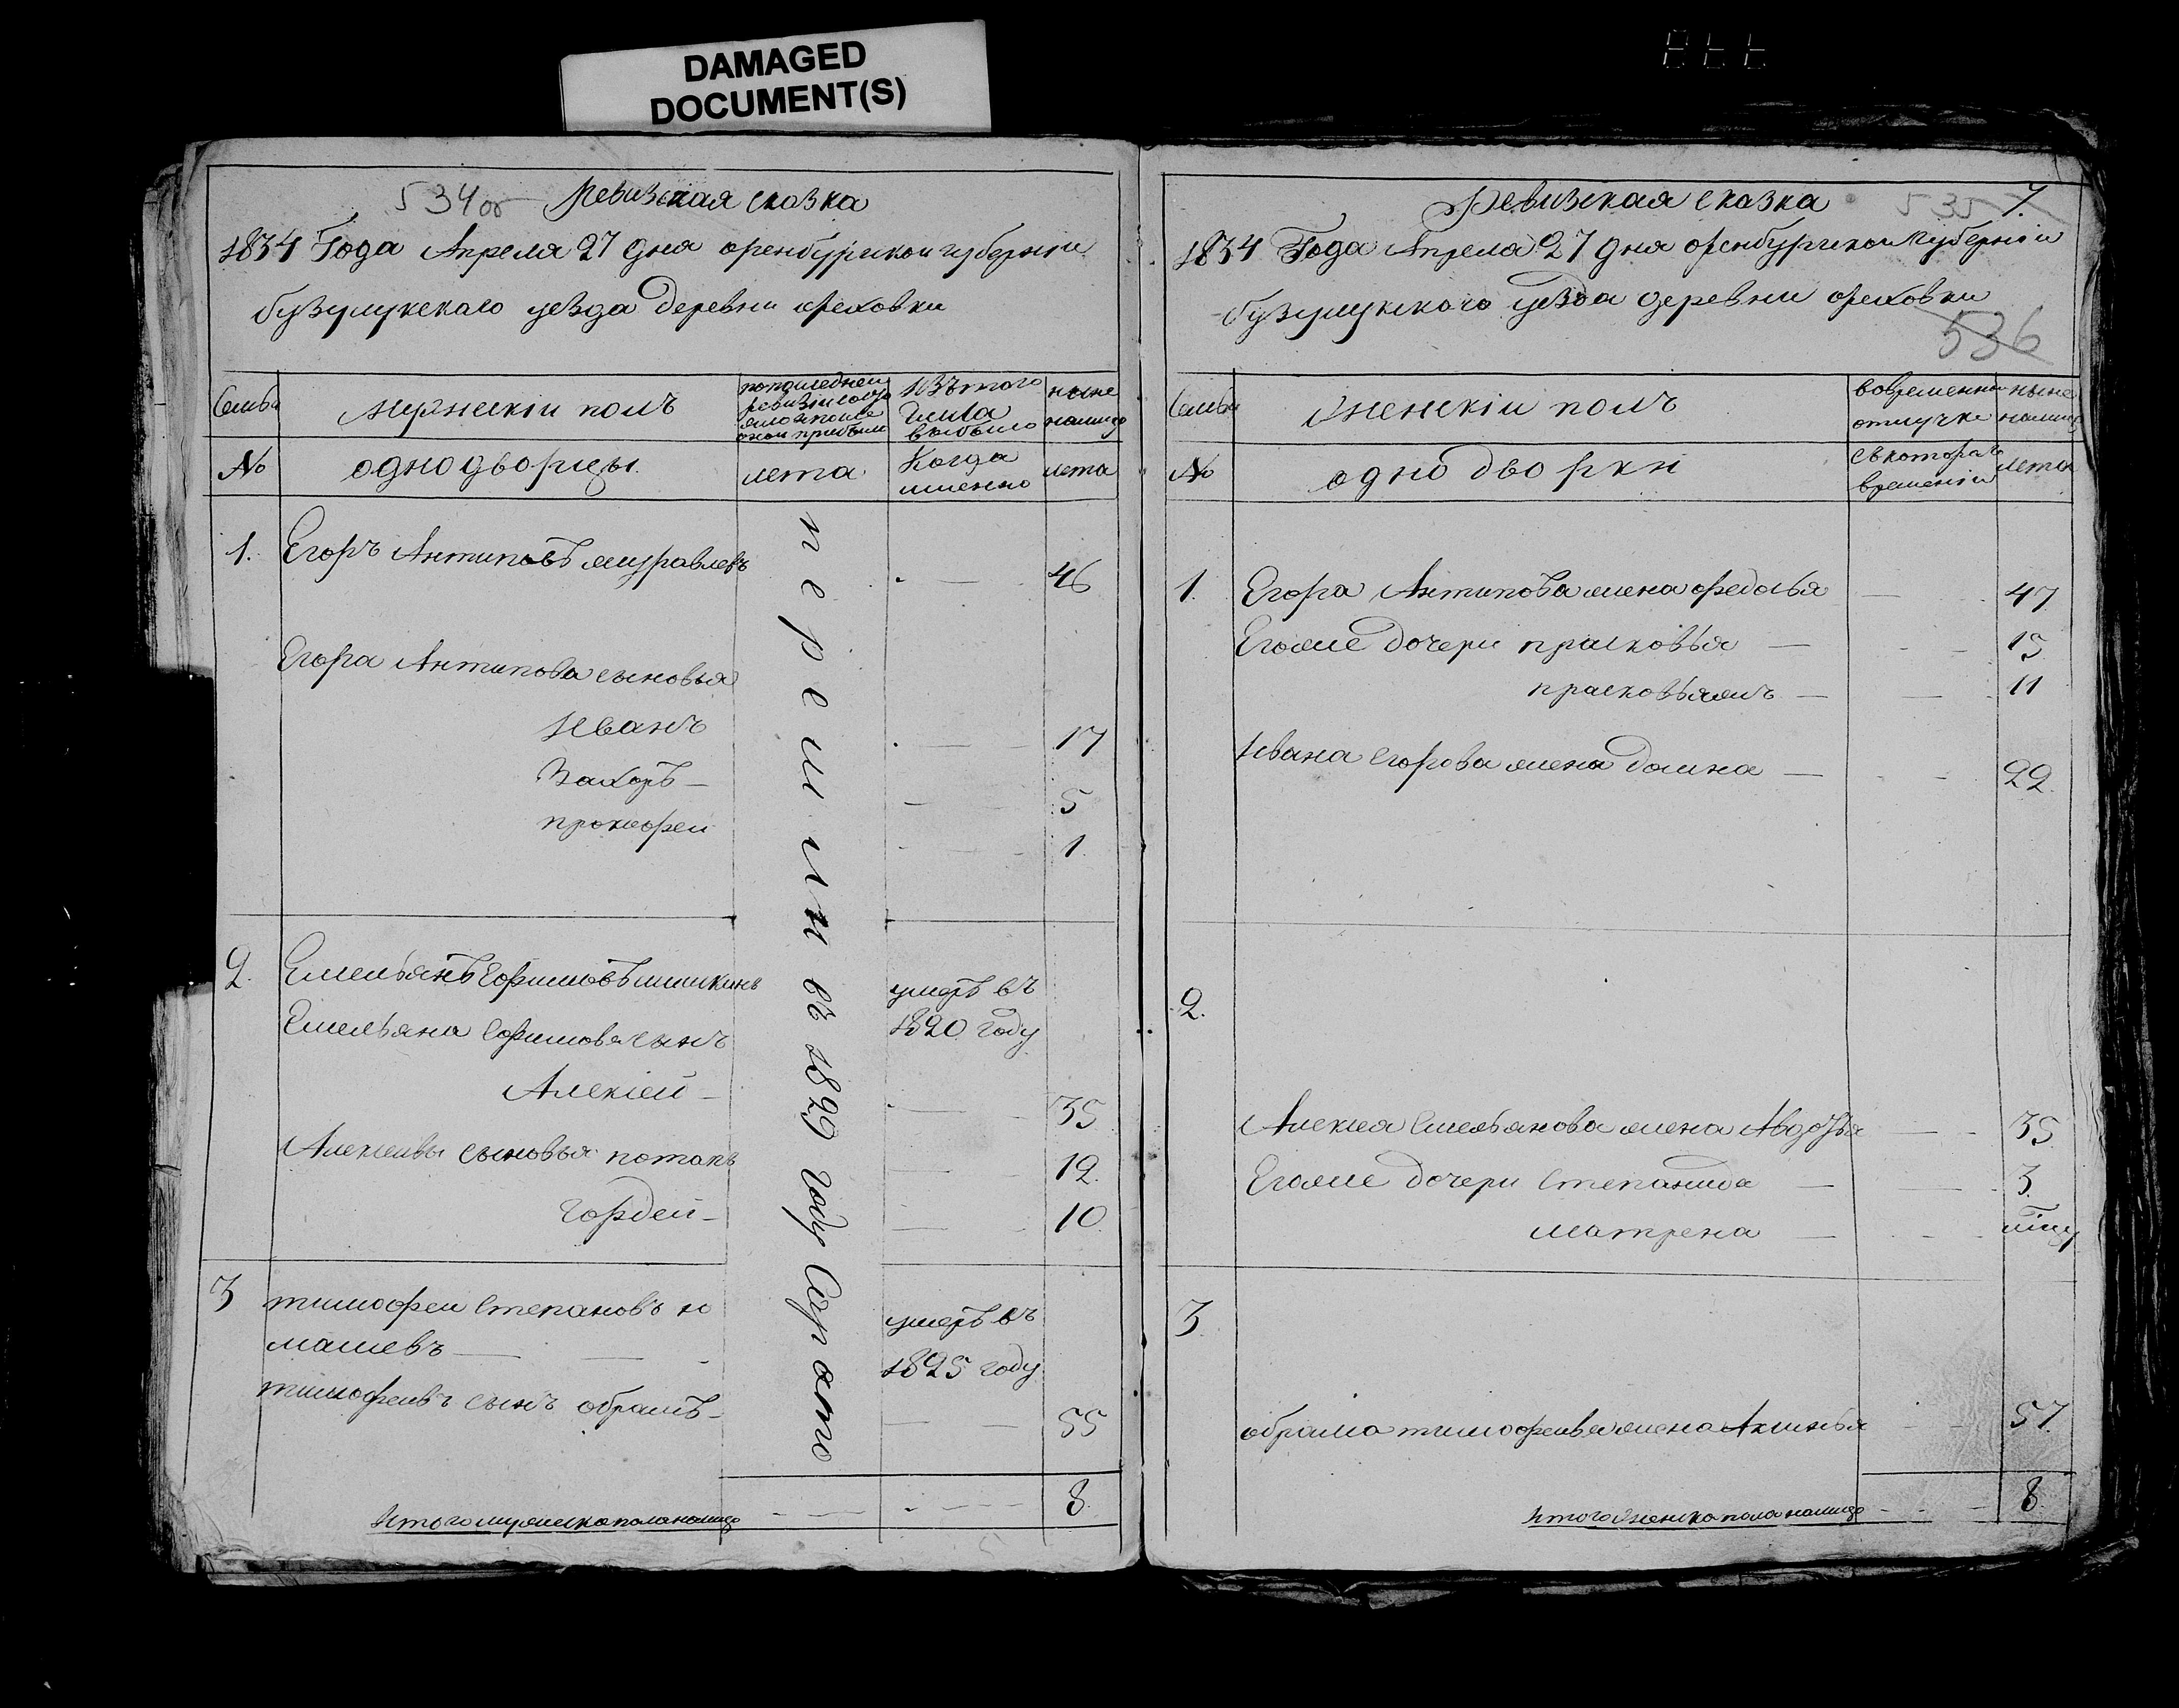 DAMAGED
DOCUMENT(S)
534об Ревизская сказка
1834 Года Апреля 27 дня оренбургскои губернии
бузулукскаго уезда деревни ореховки
Семьи
мужескiи полъ
попоследнеи
ревизiи
изътого
числа
выбыло
ныне
налицо
№
однодворцы
лета
Когда
имянно
лета
1. Егоръ Антиповъ муравлевъ 46
Егора Антипова сыновья
Иванъ 17
Захоръ 5
прокофеи 1
2. Емельянъ Ефимовъ шишкинъ умеръ въ
Емельяна Ефимова сынъ 1820 году
Алексей 35
Алексеевы сыновья потапъ 12
Гордеи 10
3 тимофеи Степановъ
машевъ умеръ въ
1825 году
тимофеевъ сынъ обрамъ 55
Итого мужеска пола налицо 8
въ 1829 году
Ревизская сказка 535 7.
1834 Года Апреля 27 дня оренбургскои губернiи
бузулукскаго уезда деревни ореховки
536
Семьи
женскiи полъ
вовременнои
отлучке
ныне
налицо
№
однодворки
съкотораго
времени
лета
1. Егора Антипова жена федосья 47
Егоже дочери прасковья 15
прасковьяжъ 11
Ивана Егорова жена домна 22
2.
Алексея Емельянова жена Авдотья 35
Егоже дочери Степанида 3
матрена
3
обрама тимофеева жена Аксинья 57
Итого женска пола налицо 8